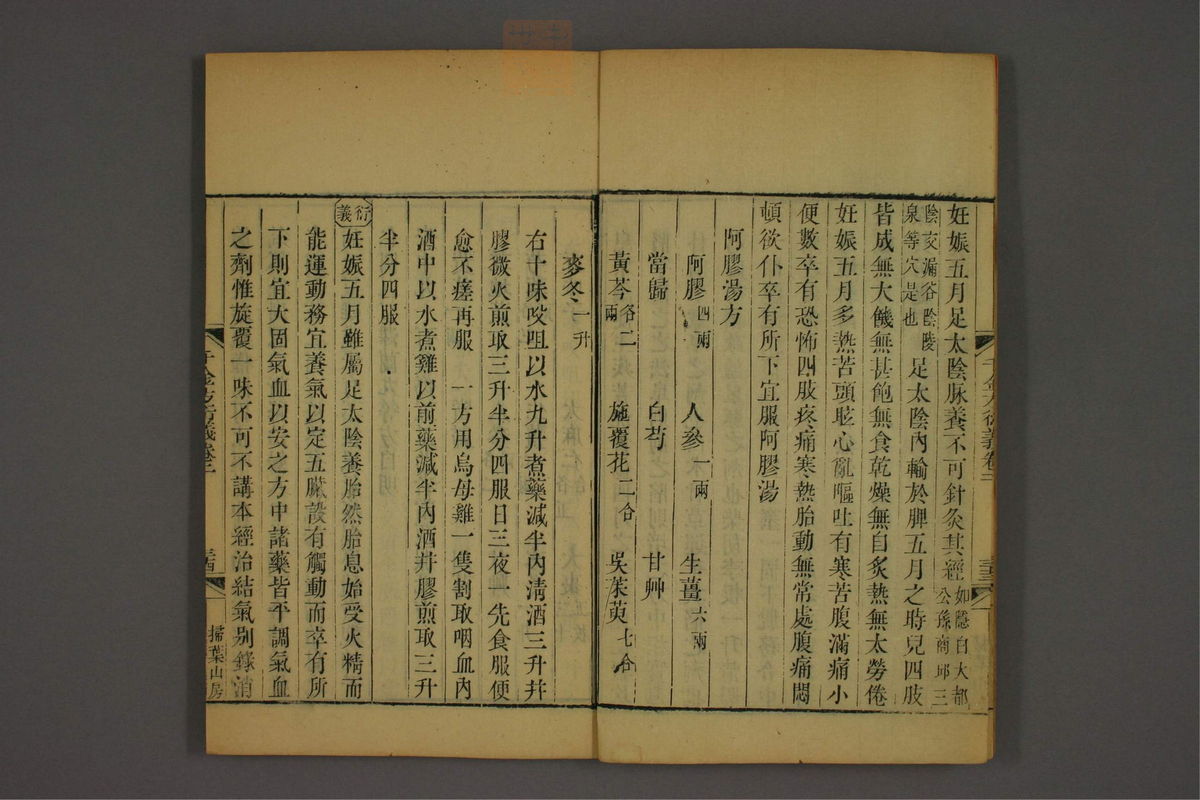 妊娠五月足太陰脉養不可針灸其經如隱白大都公孫商邱三
陰交漏谷陰陵泉等穴是也足太陰內輸於脾五月之時兒四肢
皆成無大饑無甚飽無食乾燥無自炙熱無太勞倦
妊娠五月多熱苦頭眩心亂嘔吐有寒苦腹滿痛小
便數卒有恐怖四肢疼痛寒熱胎動無常處腹痛悶
頓欲仆卒有所下宜服阿膠湯
阿膠湯方
阿膠四兩 人參一兩 生薑六兩
當歸 白芍 甘艸
黃芩各二兩 旋覆花二合 吳茱萸七合
麥冬一升
右十味㕮咀以水九升煮藥減半內清酒三升幷
膠微火煎取三升半分四服日三夜一先食服便
愈不瘥再服 一方用烏母雞一隻割取咽血內
酒中以水煮雞以前藥減半內酒幷膠煎取三升
半分四服
衍義妊娠五月雖屬足太陰養胎然胎息始受火精而
能運動務宜養氣以定五臟設有觸動而卒有所
下則宜大固氣血以安之方中諸藥皆平調氣血
之劑惟旋覆一味不可不講本經治結氣別錄消
千金方衍義卷二
掃葉山房